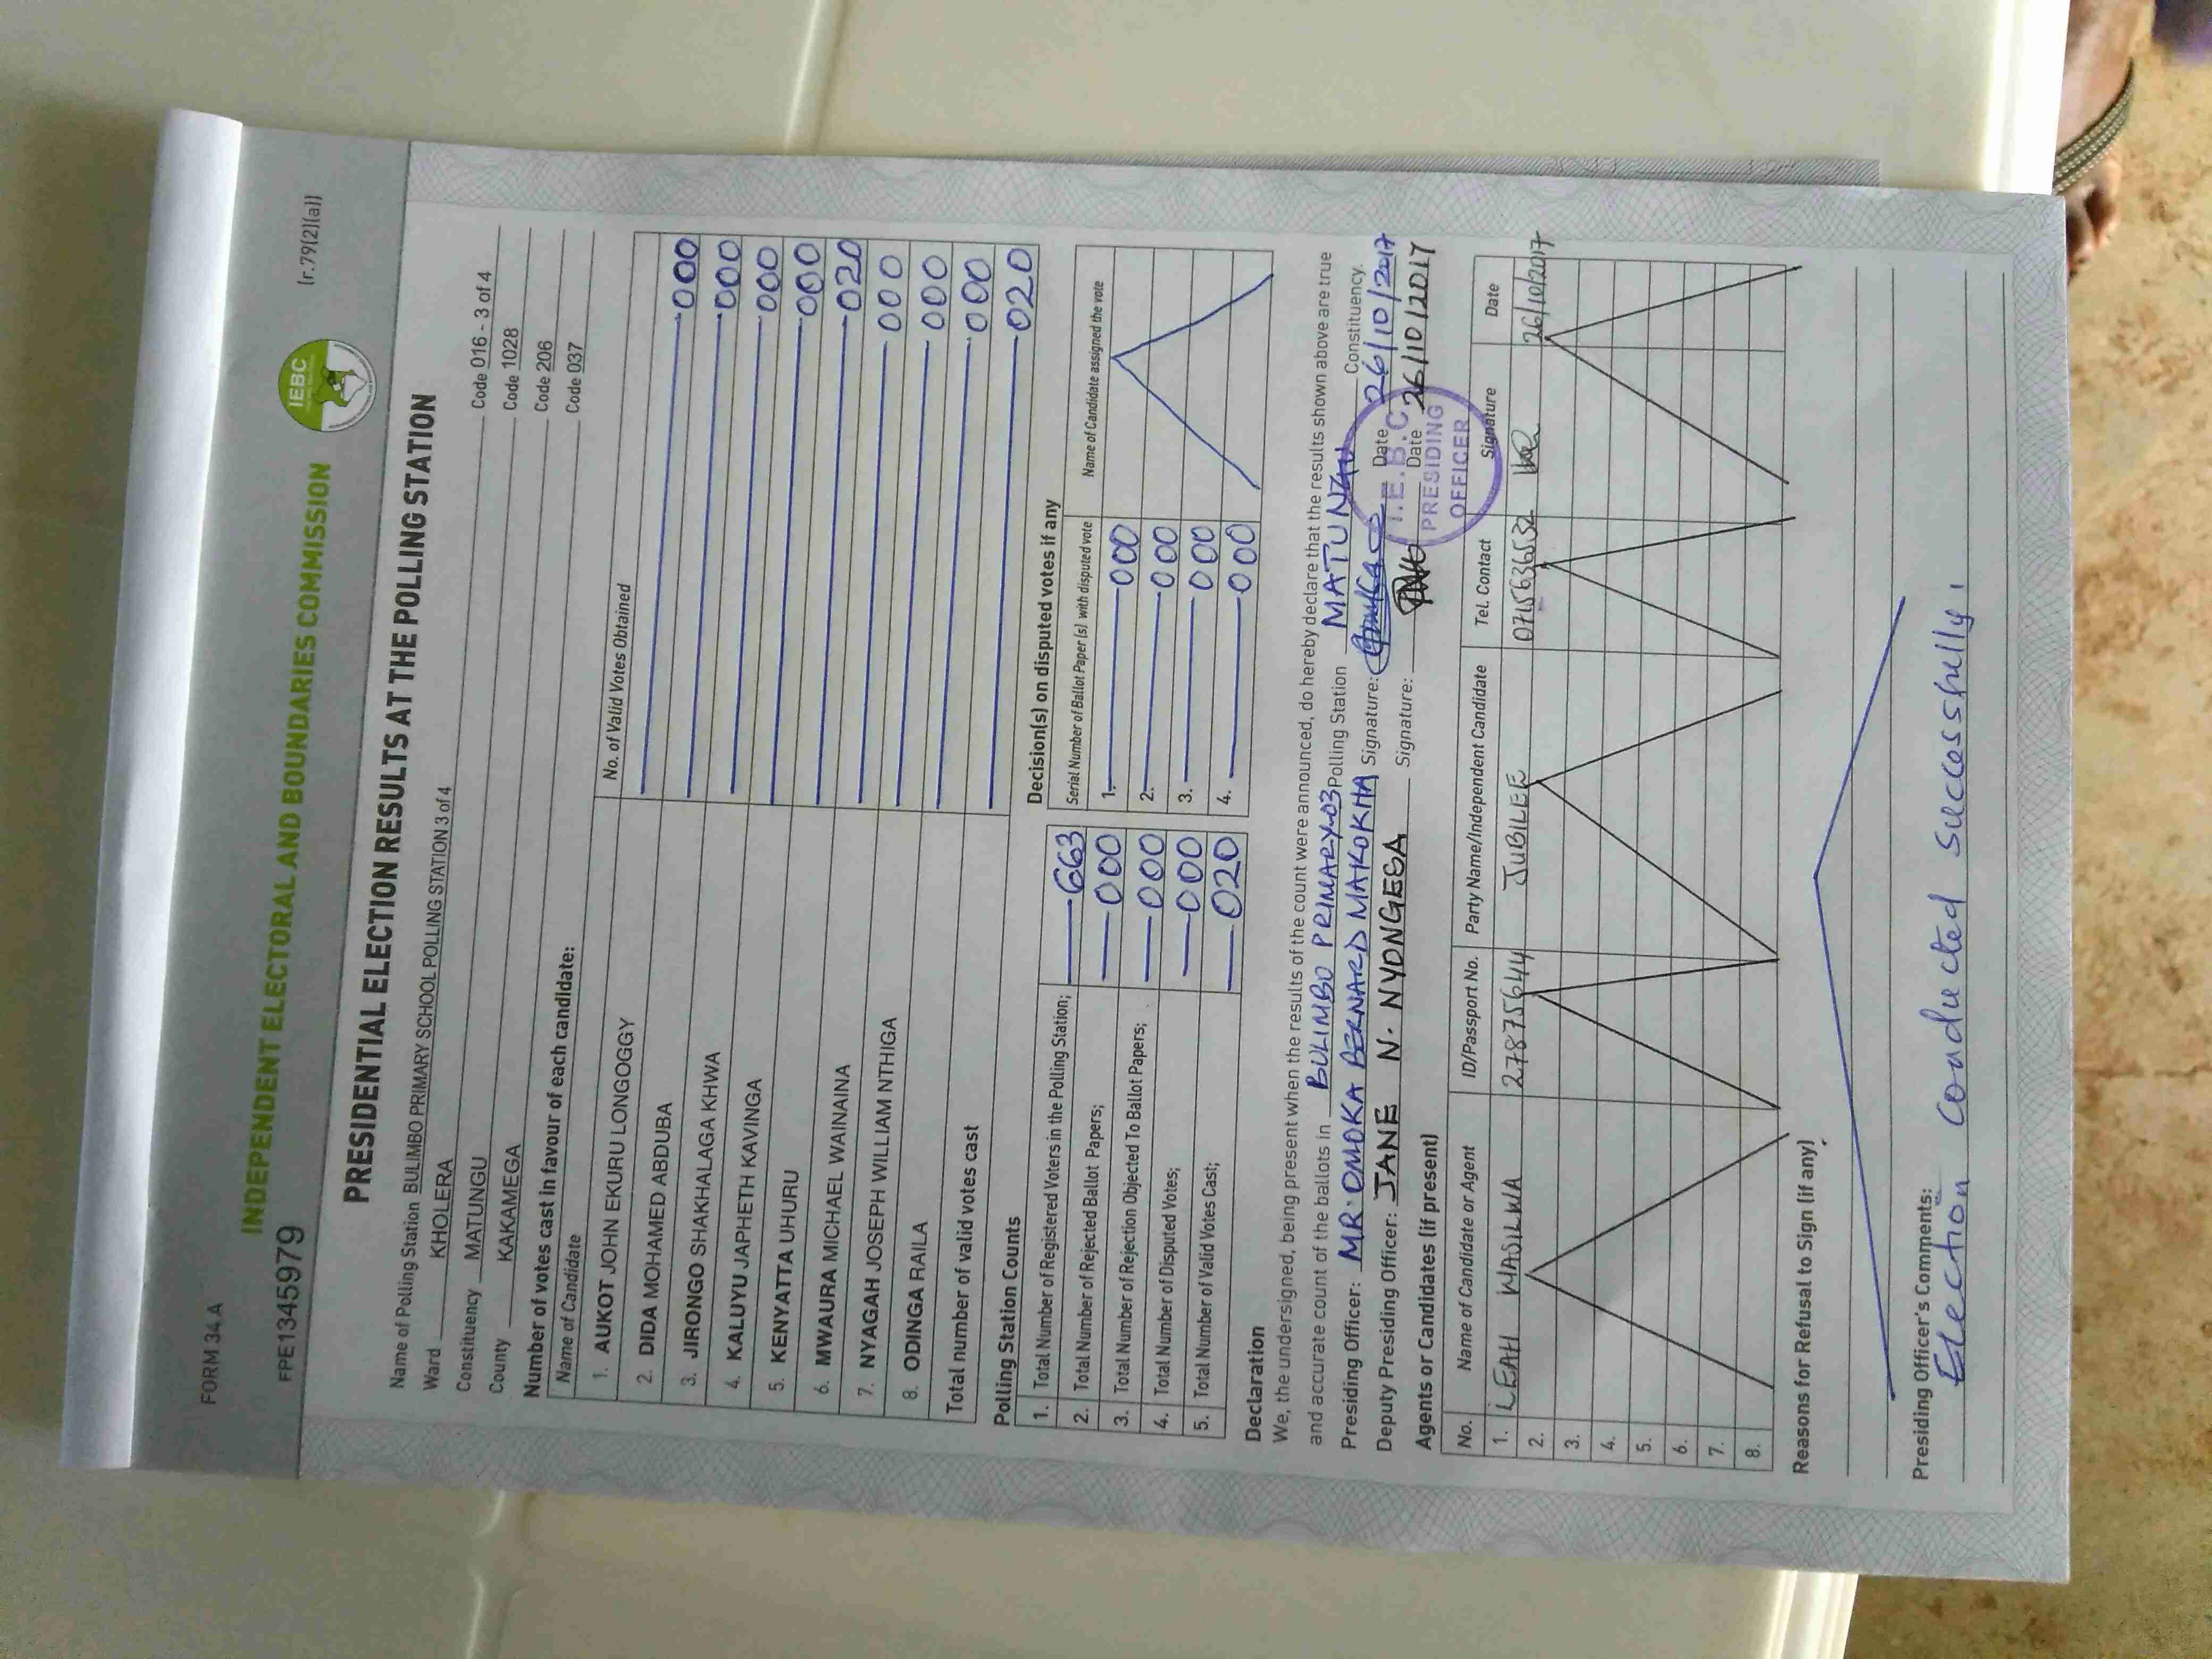 FORM 34 A
[r.79(2)(a)]
INDEPENDENT ELECTORAL AND BOUNDARIES COMMISSION
IEBC
FPE13459779
PRESIDENTIAL ELECTION RESULTS AT THE POLLING STATION
Name of Polling Station BULIMBO PRIMARY SCHOOL POLLING STATION 3 of 4 Code 016 - 3 of 4
Ward KHOLERA Code 1028
Constituency MATUNGU Code 206
County KAKAMEGA Code 037
Number of votes cast in favour of each candidate:
Name of Candidate No. of Valid Votes Obtained
1. AUKOT JOHN EKURU LONGOGGY 000
2. DIDA MOHAMED ABDUBA 000
3. JIRONGO SHAKHALAGA KHWA 000
4. KALUYU JAPHETH KAVINGA 000
5. KENYATTA UHURU 020
6. MWAURA MICHAEL WAINAINA 000
7. NYAGAH JOSEPH WILLIAM NTHIGA 000
8. ODINGA RAILA 000
Total number of valid votes cast 020
Polling Station Counts
1. Total Number of Registered Voters in the Polling Station; 663
2. Total Number of Rejected Ballot Papers; 000
3. Total Number of Rejection Objected To Ballot Papers; 000
4. Total Number of Disputed Votes; 000
5. Total Number of Valid Votes Cast; 020
Decision(s) on disputed votes if any
Serial Number of Ballot Paper(s) with disputed vote Name of Candidate assigned the vote
1. 000
2. 000
3. 000
4. 000
Declaration
We, the undersigned, being present when the results of the count were announced, do hereby declare that the results shown above are true
and accurate count of the ballots in BULIMBO PRIMARY-03 Polling Station MATUNGU Constituency.
Presiding Officer: MR. OMOKA BERNARD MAKOKHA Signature: Date 26/10/2017
Deputy Presiding Officer: JANE N. NYONGESA Signature: Date 26/10/2017
I.E.B.C
PRESIDING
OFFICER
Agents or Candidates (if present)
No. Name of Candidate or Agent ID/Passport No. Party Name/Independent Candidate Tel. Contact Signature Date
1. LEAH WASILWA 27875644 JUBILEE 26/10/2017
2.
3.
4.
5.
6.
7.
8.
Reasons for Refusal to Sign (if any)
Presiding Officer's Comments:
Election conducted successfully.